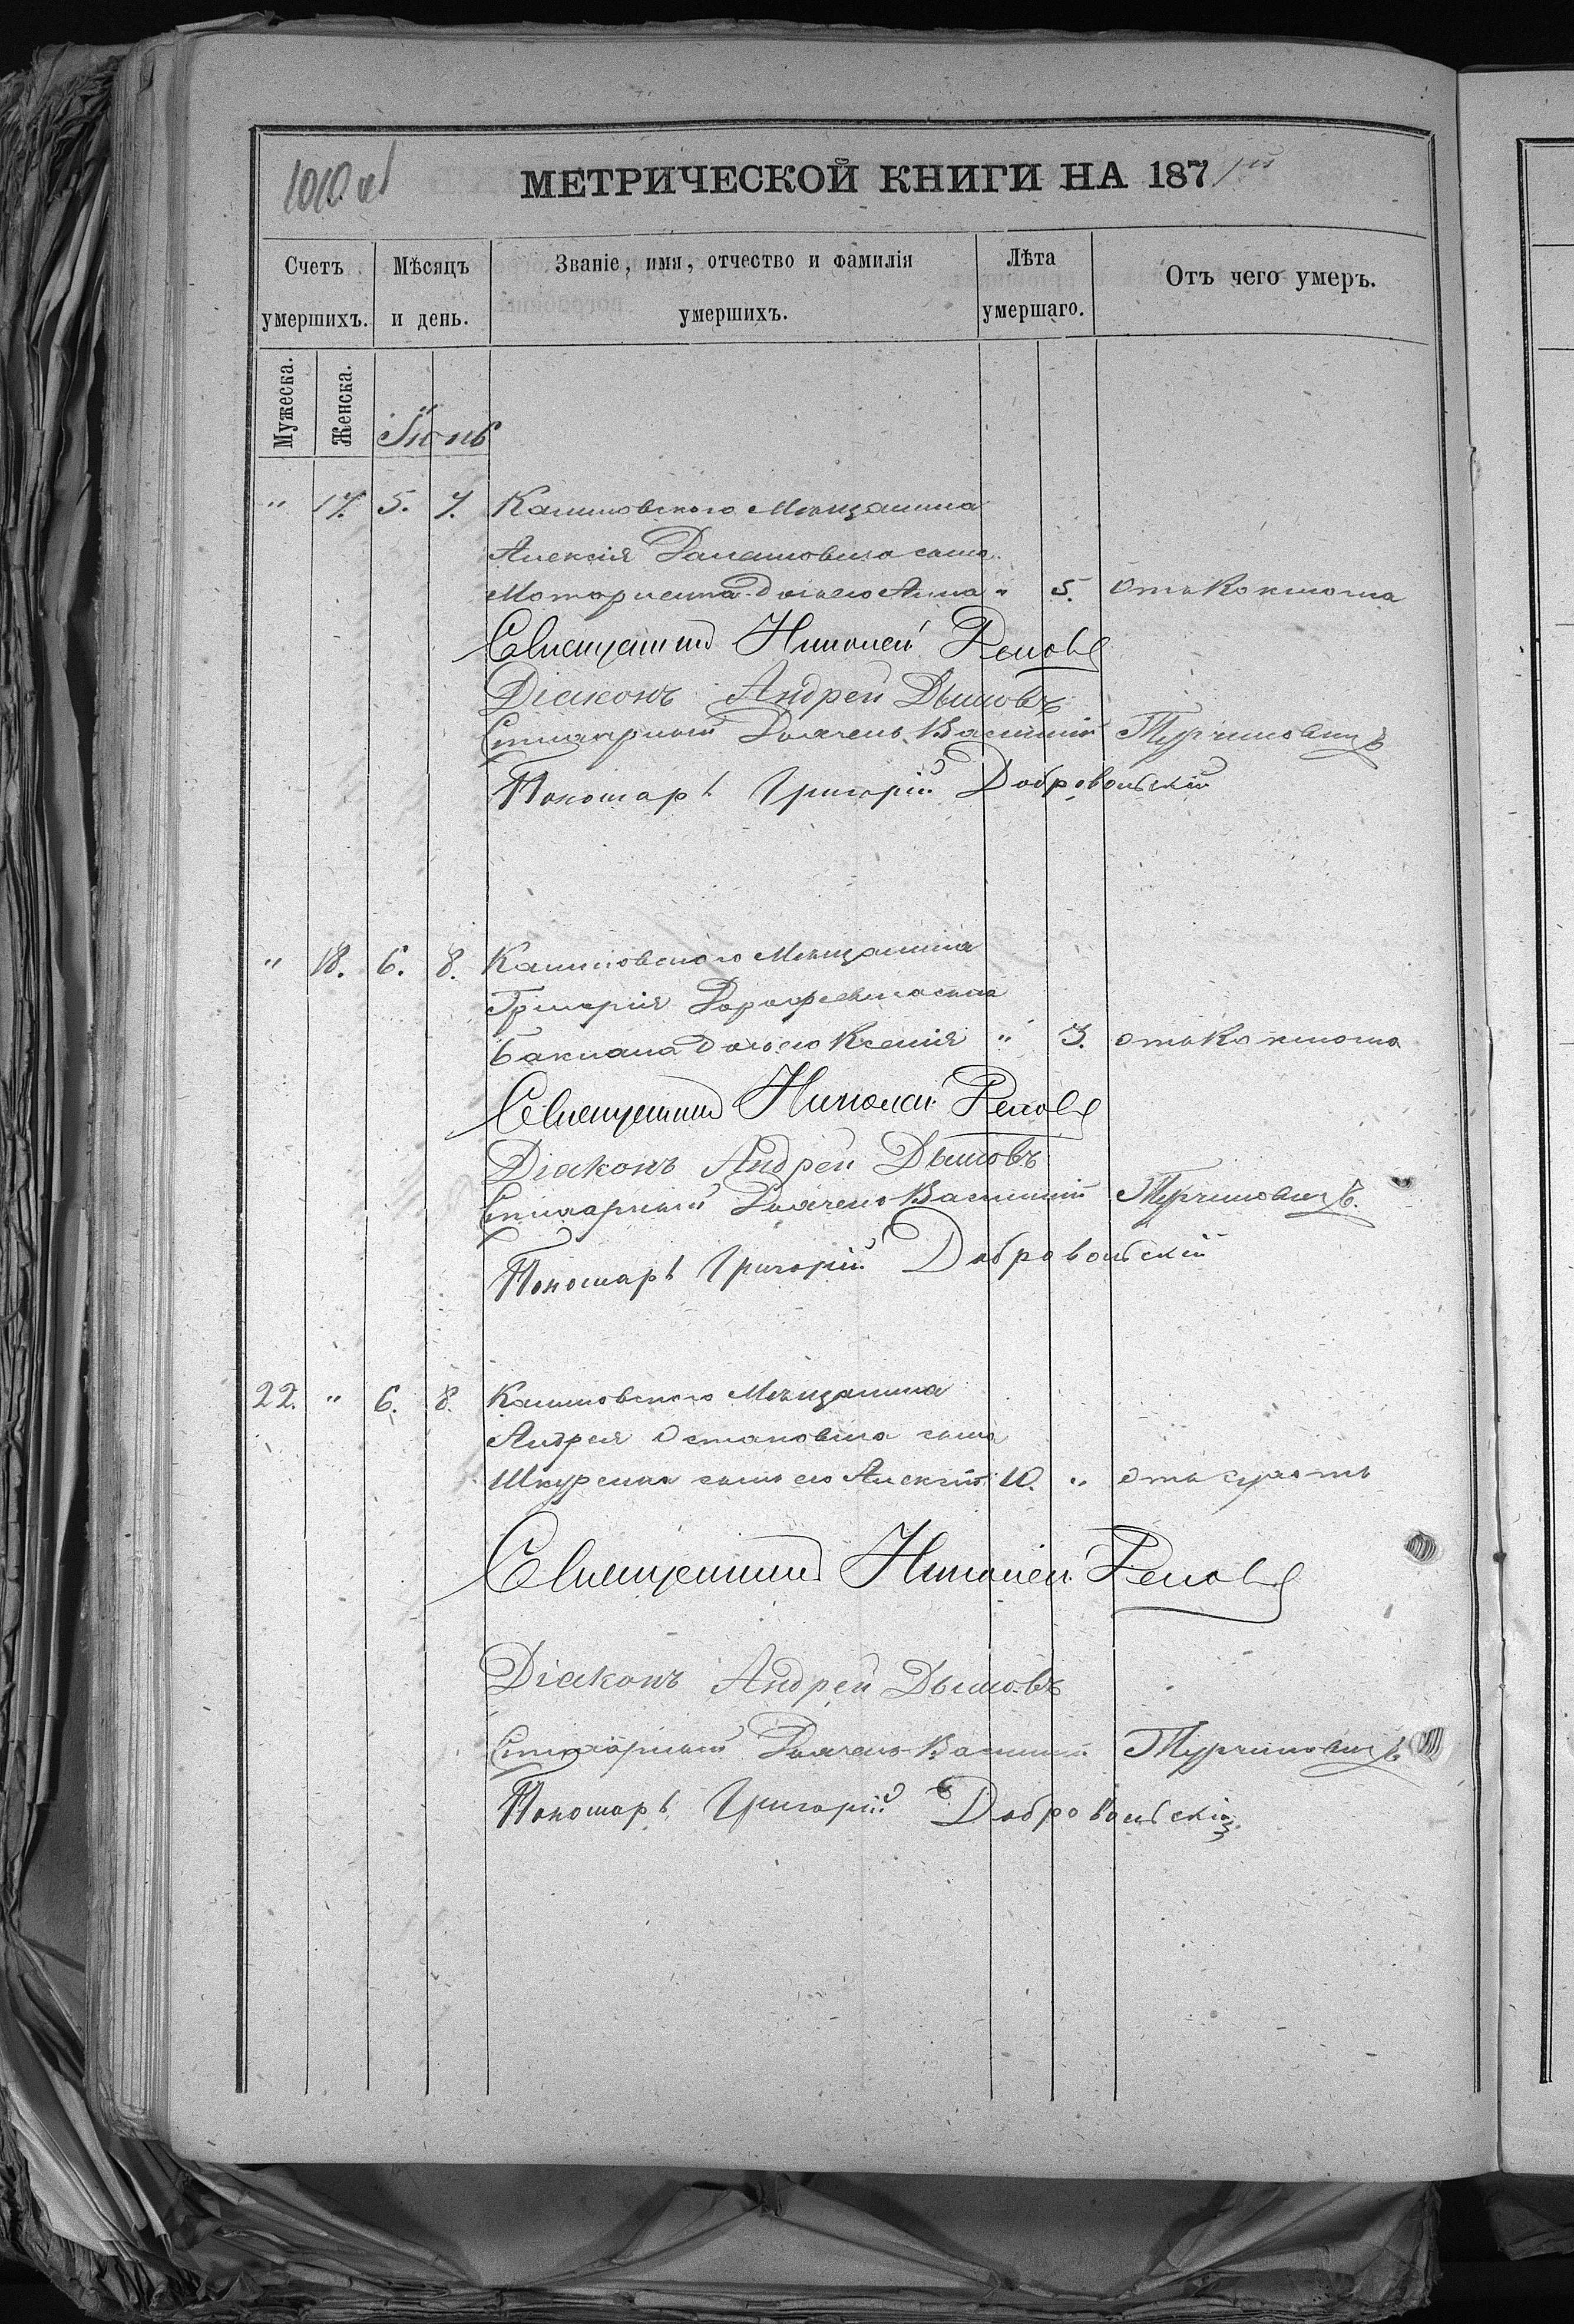 1010 об
МЕТРИЧЕСКОЙ КНИГИ НА 1871й
Счетъ умершихъ.
Мѣсяцъ и день.
Званіе, имя, отчество и фамилія умершихъ.
Лѣта умершаго.
Отъ чего умеръ.
Мужеска.
Женска.
Іюнь
" 17. 5. 7. Мѣщанина
Алексія сына
дочь его Анна " 5. Отъ Коклюша
Священникъ Николай
Діаконъ Андрей Дымовъ
Стихарный Дьячекъ Василій Турчиновичъ
Пономарь Григорій Добровольскій
" 18. 6. 8. Мѣщанина
Григорія Дорофѣева сына
Баклана дочь его Ксенія " 3. отъ Коклюша
Священникъ Николай
Діаконъ Андрей Дымовъ
Стихарный Дьячекъ Василій Турчиновичъ.
Пономарь Григорій Добровольскій
22. " 6. 8. Мѣщанина
Андрея Остаповича сына
сынъ его Алексій 10. " отъ
Священникъ Николай
Діаконъ Андрей Дымовъ
Стихарный Дьячекъ Василій Турчиновичъ
Пономарь Григорій Добровольскій